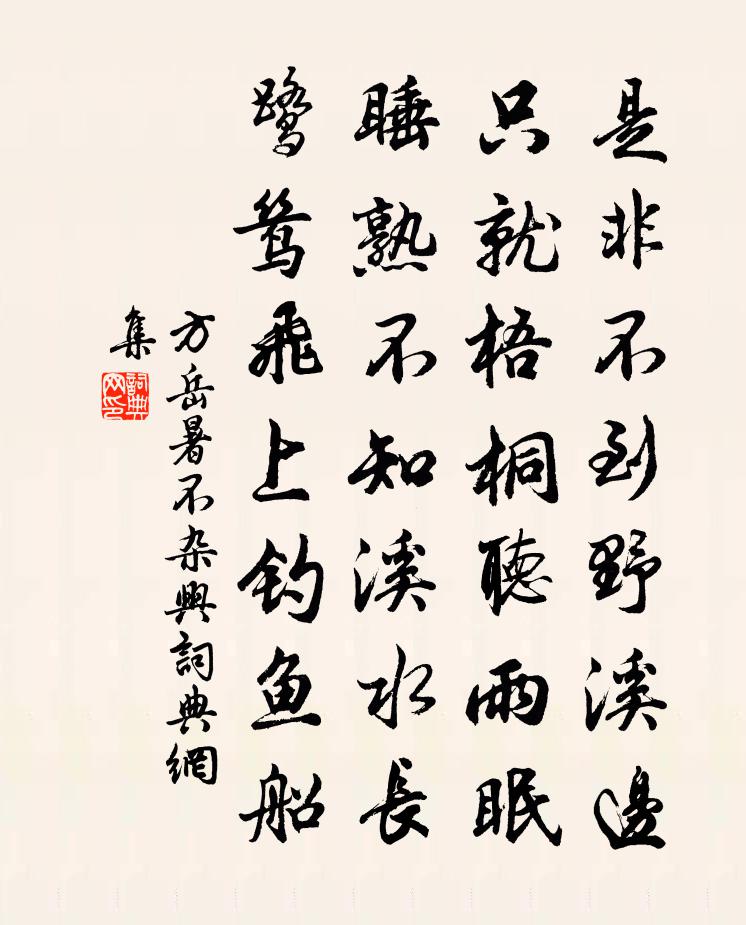 是非不到野溪邊
只就梧桐聽雨眠
睡熟不知溪水長
鹭鸶飛上钓鱼船
方岳暑不杂興詞典網
集
詞典网印